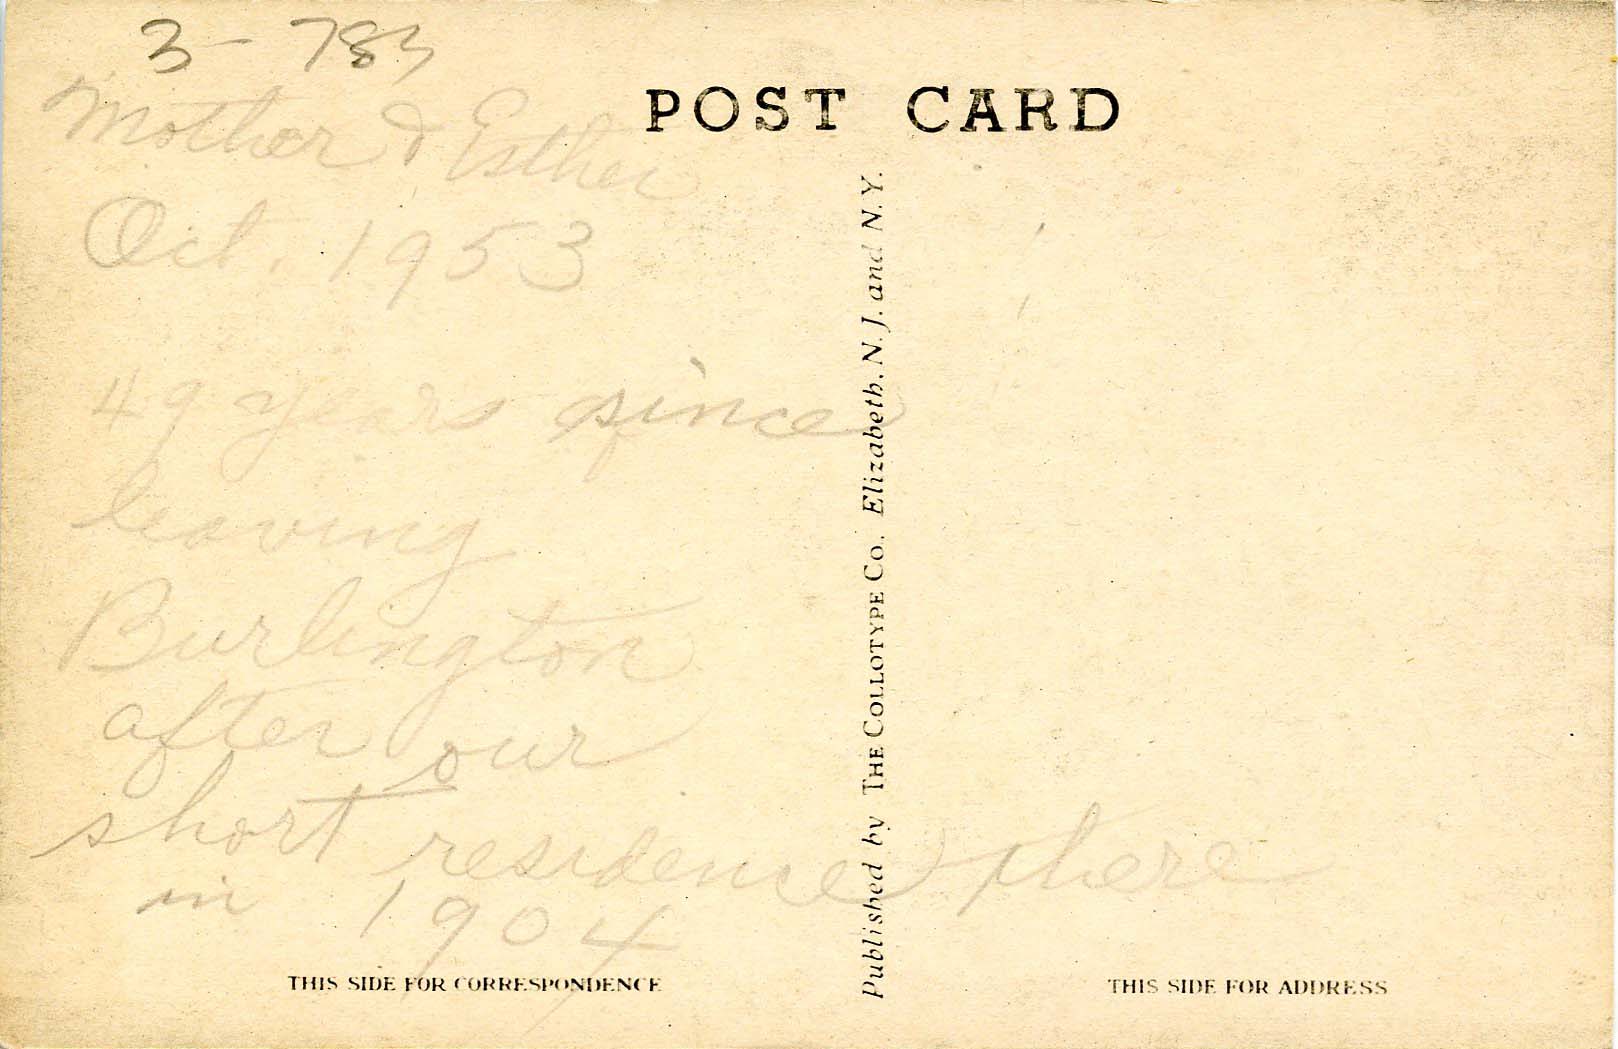 3 - 783
Mother & Esther
Oct. 1953
49 years since
leaving
Burlington
after our
short residence there
in 1904
POST CARD
Published by THE COLLOTYPE CO. Elizabeth, N. J. and N. Y.
THIS SIDE FOR CORRESPONDENCE
THIS SIDE FOR ADDRESS